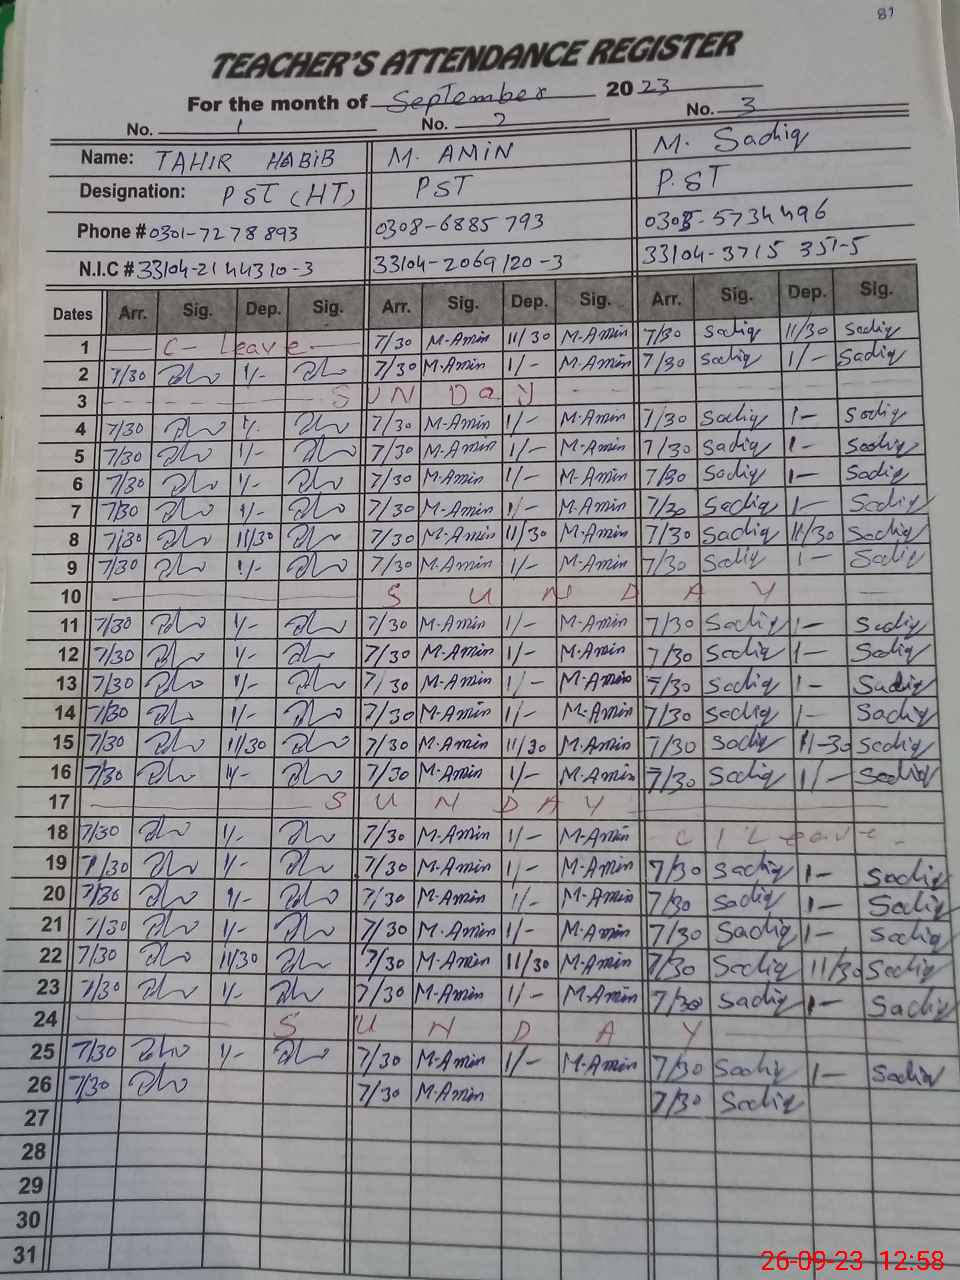 81
TEACHER'S ATTENDANCE REGISTER
For the month of September 2023
No. 1 No. 2 No. 3
Name: TAHIR HABIB M. AMIN M. Sadiq
Designation: PST (HT) PST P.ST
Phone # 0301-7278893 0308-6885793 0308-5734496
N.I.C # 33104-2144310-3 33104-2069120-3 33104-3715351-5
Dates Arr. Sig. Dep. Sig. Arr. Sig. Dep. Sig. Arr. Sig. Dep. Sig.
1 C- Leave 7/30 M-Amin 11/30 M-Amin 7/30 Sadiq 11/30 Sadiq
2 7/30 1/- 7/30 M-Amin 1/- M-Amin 7/30 Sadiq 1/- Sadiq
3 SUNDay
4 7/30 1/- 7/30 M-Amin 1/- M-Amin 7/30 Sadiq 1- Sadiq
5 7/30 1/- 7/30 M-Amin 1/- M-Amin 7/30 Sadiq 1- Sadiq
6 7/30 1/- 7/30 M-Amin 1/- M-Amin 7/30 Sadiq 1- Sadiq
7 7/30 1/- 7/30 M-Amin 1/- M-Amin 7/30 Sadiq 1- Sadiq
8 7/30 11/30 7/30 M-Amin 11/30 M-Amin 7/30 Sadiq 11/30 Sadiq
9 7/30 1/- 7/30 M-Amin 1/- M-Amin 7/30 Sadiq 1- Sadiq
10 SUNDAY
11 7/30 1/- 7/30 M-Amin 1/- M-Amin 7/30 Sadiq 1- Sadiq
12 7/30 1/- 7/30 M-Amin 1/- M-Amin 7/30 Sadiq 1- Sadiq
13 7/30 1/- 7/30 M-Amin 1/- M-Amin 7/30 Sadiq 1- Sadiq
14 7/30 1/- 7/30 M-Amin 1/- M-Amin 7/30 Sadiq 1- Sadiq
15 7/30 11/30 7/30 M-Amin 11/30 M-Amin 7/30 Sadiq 11-30 Sadiq
16 7/30 1/- 7/30 M-Amin 1/- M-Amin 7/30 Sadiq 1/- Sadiq
17 SUNDAY
18 7/30 1/- 7/30 M-Amin 1/- M-Amin C/Leave
19 7/30 1/- 7/30 M-Amin 1/- M-Amin 7/30 Sadiq 1- Sadiq
20 7/30 1/- 7/30 M-Amin 1/- M-Amin 7/30 Sadiq 1- Sadiq
21 7/30 1/- 7/30 M-Amin 1/- M-Amin 7/30 Sadiq 1- Sadiq
22 7/30 11/30 7/30 M-Amin 11/30 M-Amin 7/30 Sadiq 11/30 Sadiq
23 7/30 1/- 7/30 M-Amin 1/- M-Amin 7/30 Sadiq 1- Sadiq
24 SUNDAY
25 7/30 1/- 7/30 M-Amin 1/- M-Amin 7/30 Sadiq 1- Sadiq
26 7/30 7/30 M-Amin 7/30 Sadiq
27
28
29
30
31
26-09-23 12:58